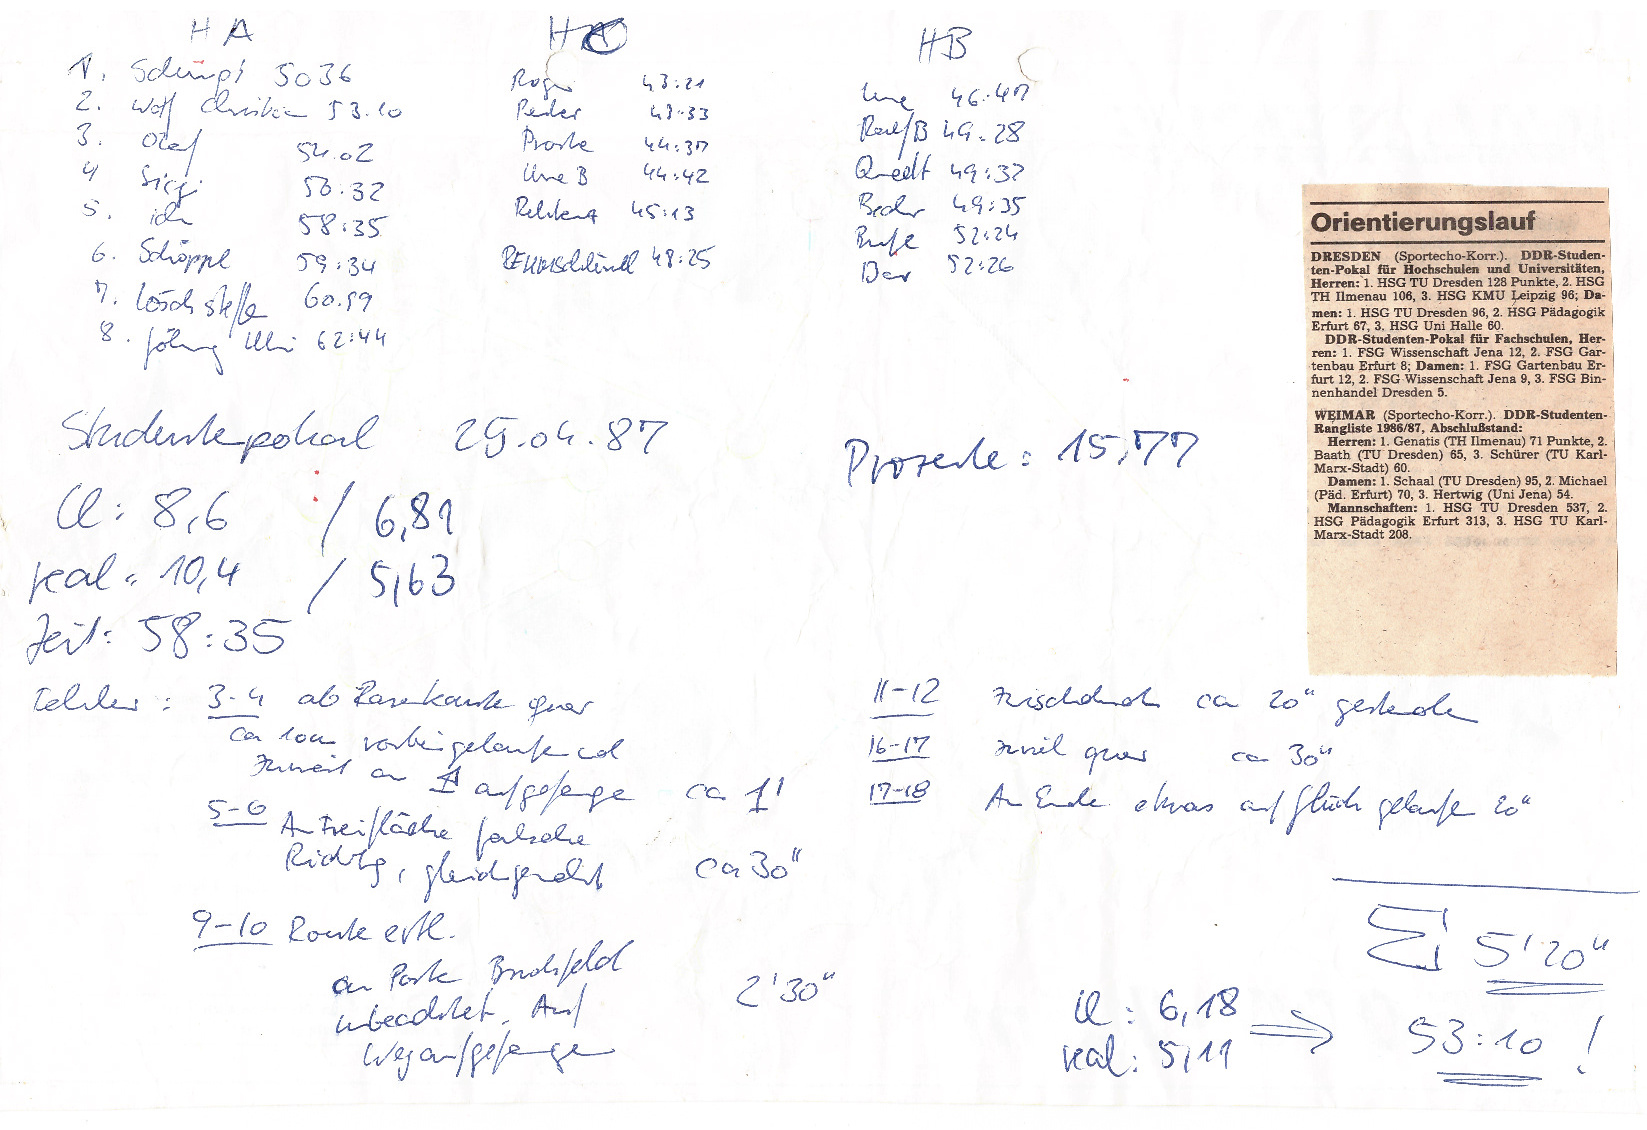 HA
1. Schimpf 5036
2. Wolf 53.10
3. Olaf 54.02
4 Siggi 56.32
5. ich 58:35
6. Schöppe 59:34
7. Lösch Steffen 60.59
8. 62:44
H
Roger 43:21
43:33
44:37
Uwe B 44:42
45:13
48:25
HB
Uwe 46:47
Ralf B 49:28
Quedt 49:37
49:35
52:24
52:26
Studentenpokal 29.04.87
Prozente: 15,77
Ll: 8,6 / 6,81
real: 10,4 / 5,63
Zeit: 58:35
Fehler: 3-4 ab Rasenkante quer
ca 10m vorbeigelaufen und
zuweit an aufgefangen ca 1'
5-6 An Freifläche falsche
Richtg, gleichgemerkt ca 30"
9-10 Route erk.
an Bruchfeld
unbeachtet. Auf 2'30"
Weg aufgefangen
11-12 ca 20" gestanden
16-17 zuviel quer ca 30"
17-18 Am Ende etwas auf Glück gelaufen 20"
Σ 5'20"
Ll: 6,18
real: 5,11 ⇒ 53:10 !
Orientierungslauf
DRESDEN (Sportecho-Korr.). DDR-Studen-
ten-Pokal für Hochschulen und Universitäten,
Herren: 1. HSG TU Dresden 128 Punkte, 2. HSG
TH Ilmenau 106, 3. HSG KMU Leipzig 96; Da-
men: 1. HSG TU Dresden 96, 2. HSG Pädagogik
Erfurt 67, 3. HSG Uni Halle 60.
DDR-Studenten-Pokal für Fachschulen, Her-
ren: 1. FSG Wissenschaft Jena 12, 2. FSG Gar-
tenbau Erfurt 8; Damen: 1. FSG Gartenbau Er-
furt 12, 2. FSG Wissenschaft Jena 9, 3. FSG Bin-
nenhandel Dresden 5.
WEIMAR (Sportecho-Korr.). DDR-Studenten-
Rangliste 1986/87, Abschlußstand:
Herren: 1. Genatis (TH Ilmenau) 71 Punkte, 2.
Baath (TU Dresden) 65, 3. Schürer (TU Karl-
Marx-Stadt) 60.
Damen: 1. Schaal (TU Dresden) 95, 2. Michael
(Päd. Erfurt) 70, 3. Hertwig (Uni Jena) 54.
Mannschaften: 1. HSG TU Dresden 537, 2.
HSG Pädagogik Erfurt 313, 3. HSG TU Karl-
Marx-Stadt 208.